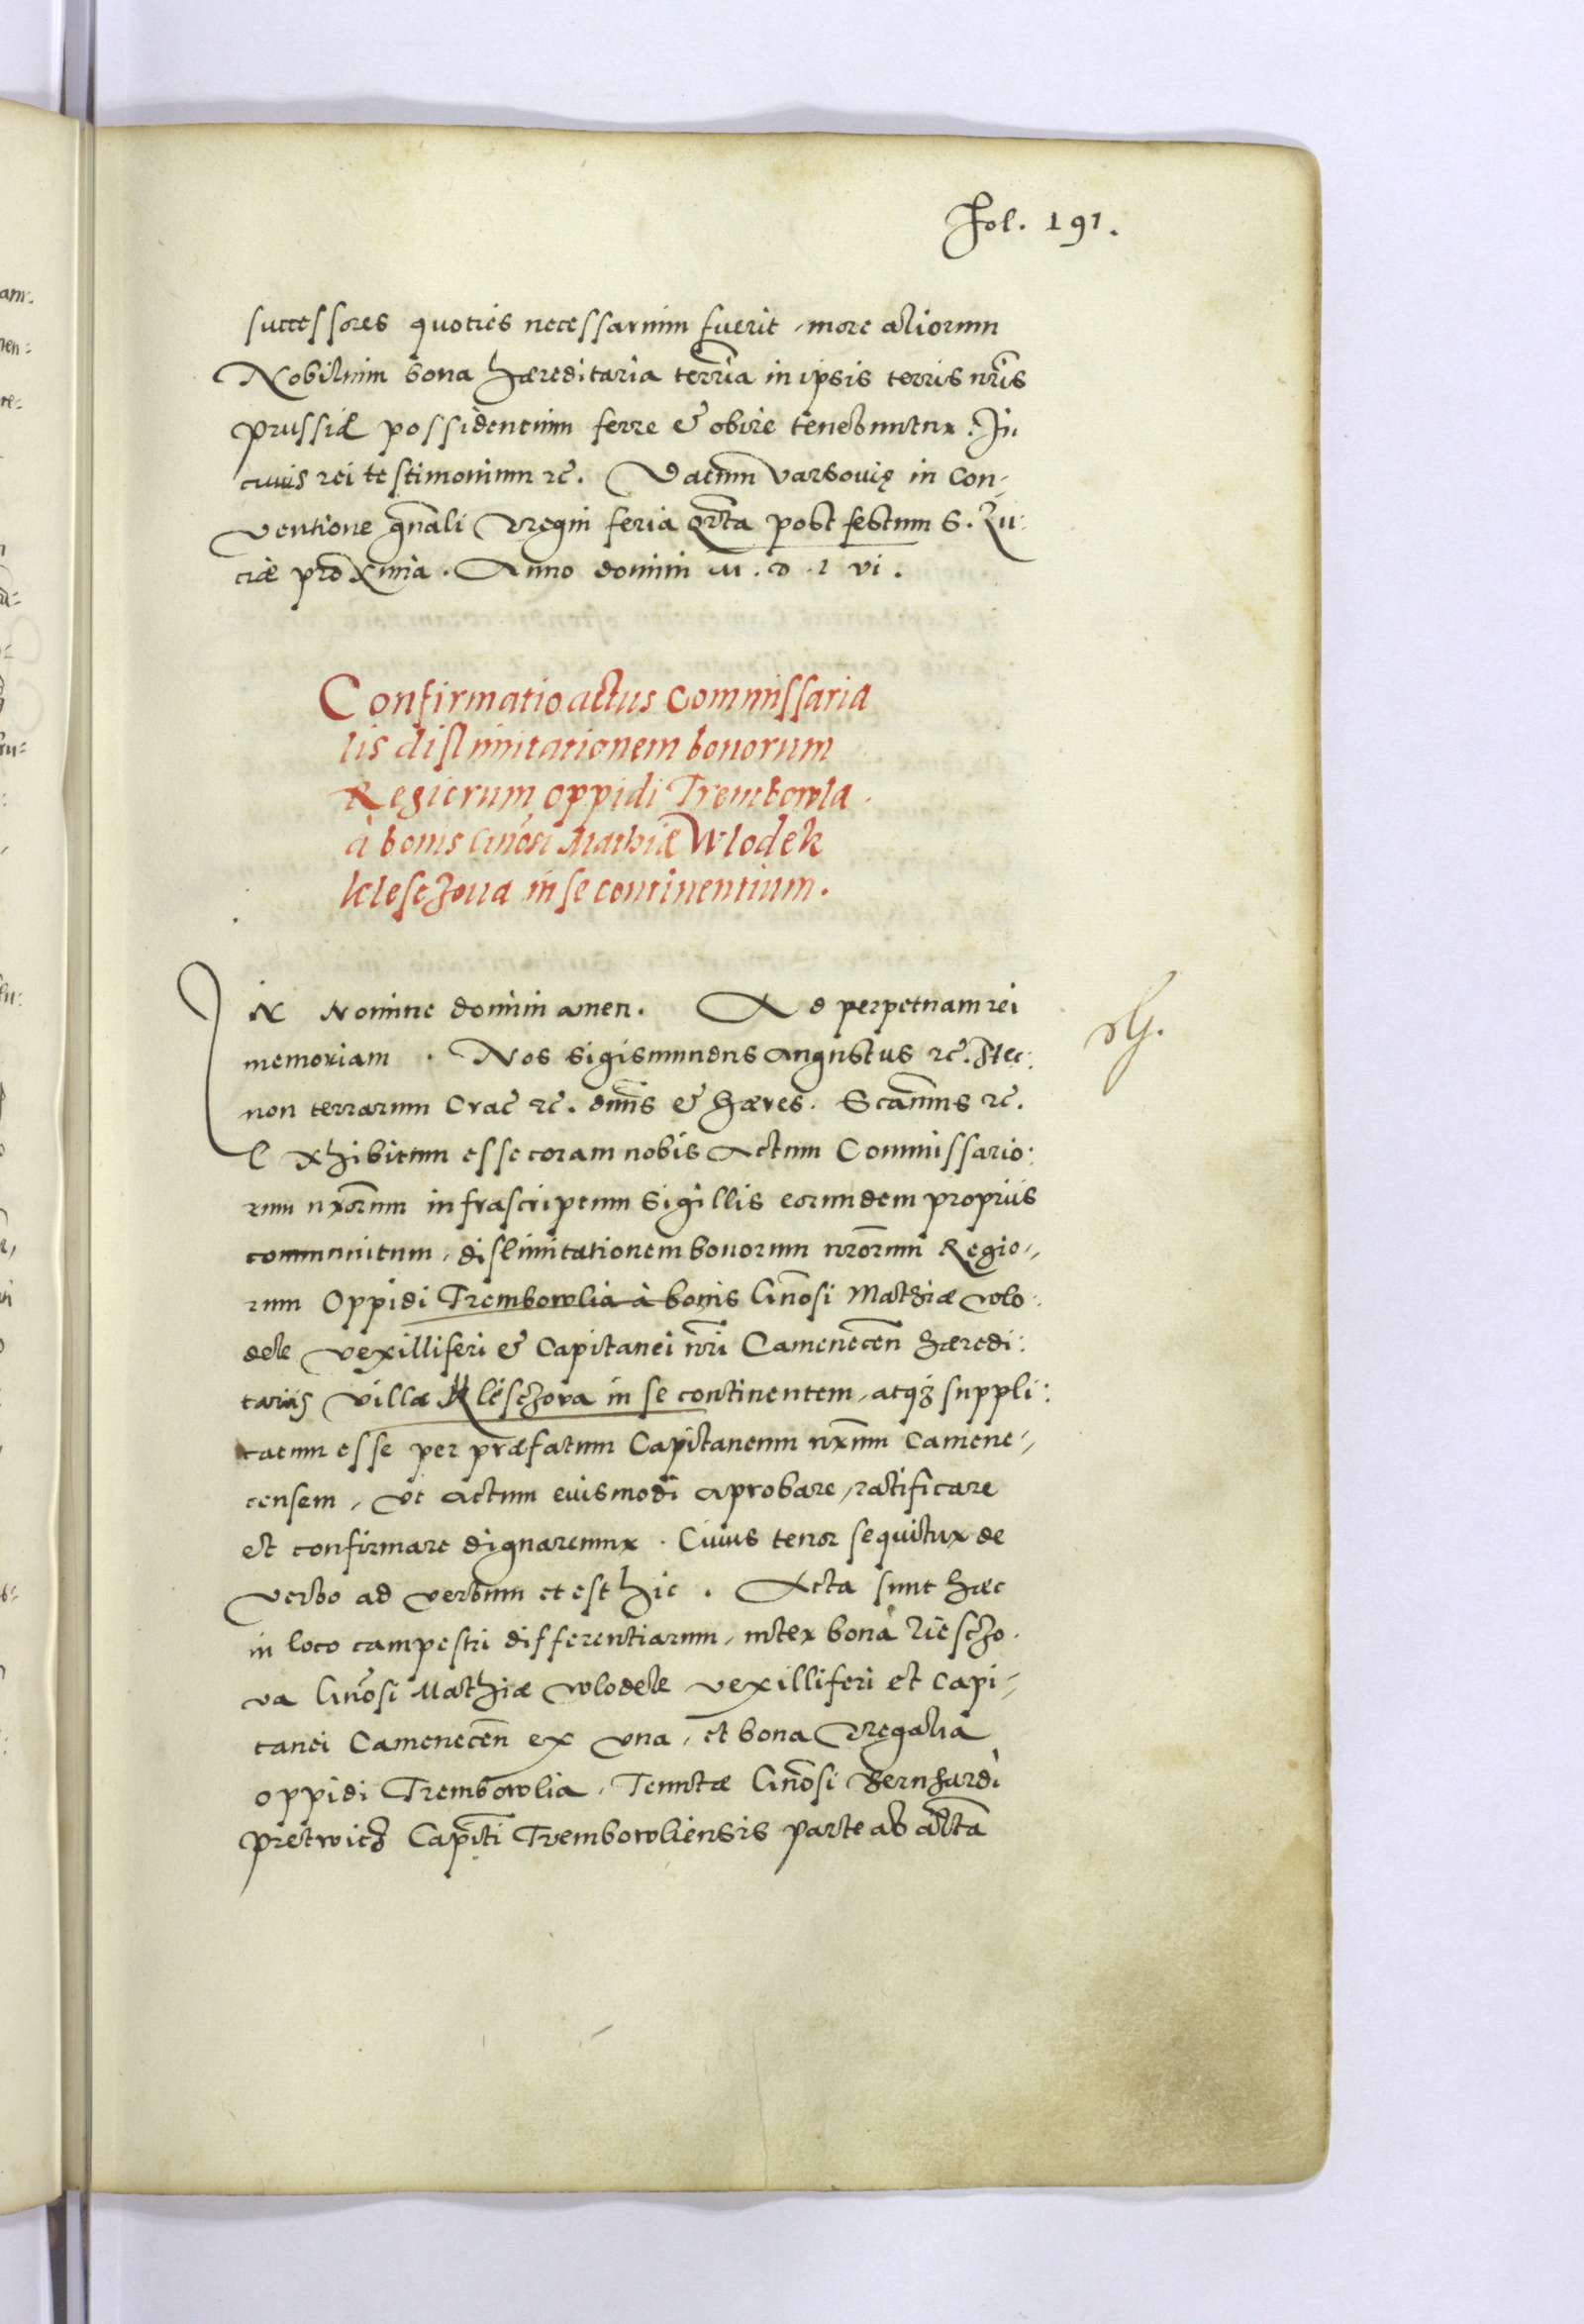 Fol. 191.
successores quoties necessarium fuerit, more aliorum
Nobilium bona hæreditaria terr̃ia in ipsis terris nr̃is
Prussiæ possidentium ferre & obire tenebuntur. In
cuius rei testimonium ꝛc̃. Datum Varsovię in Con-
ventione gñali Regni feria Qrta post festum S. Lu-
ciæ proxima. Anno domini M. D. L vi.
Confirmatio actus Commissaria
lis dislimitationem bonorum
Regiorum oppidi Trembowla
à bonis Gñosi Mathiæ Wlodek
Kleschova in se continentium.
IN Nomine domini amen. Ad perpetuam rei
memoriam. Nos Sigismundus Augustus ꝛc̃. Nec
non terrarum Crac̃ ꝛc̃. dnus & hæres. Scamus ꝛc̃.
Exhibitum esse coram nobis Actum Commissario:
rum nrorum infrascriptum Sigillis eorundem propriis
communitum, dislimitationem bonorum nrorum Regio-
rum Oppidi Trembowlia à bonis Gñosi Mathiæ Wlo-
dek Vexilliferi & Capitanei nri Camenecen̄ hæredi:
tariis Villa Kleschova in se continentem, atqꝫ suppli:
catum esse per præfatum Capitaneum nrum Camene-
censem, Vt actum eiusmodi aprobare, ratificare
et confirmare dignaremur. Cuius tenor sequitur de
Verbo ad Verbum et est hic. Acta sunt hæc
in loco campestri differentiarum, inter bona Klescho-
va Gñosi Mathiæ Wlodek Vexilliferi et Capi-
tanei Camenecen̄ ex Vna, et bona Regalia
oppidi Trembowlia, Tenutæ Gñosi Bernhardi
Pretwicz Capiti Trembowliensis parte ab altã